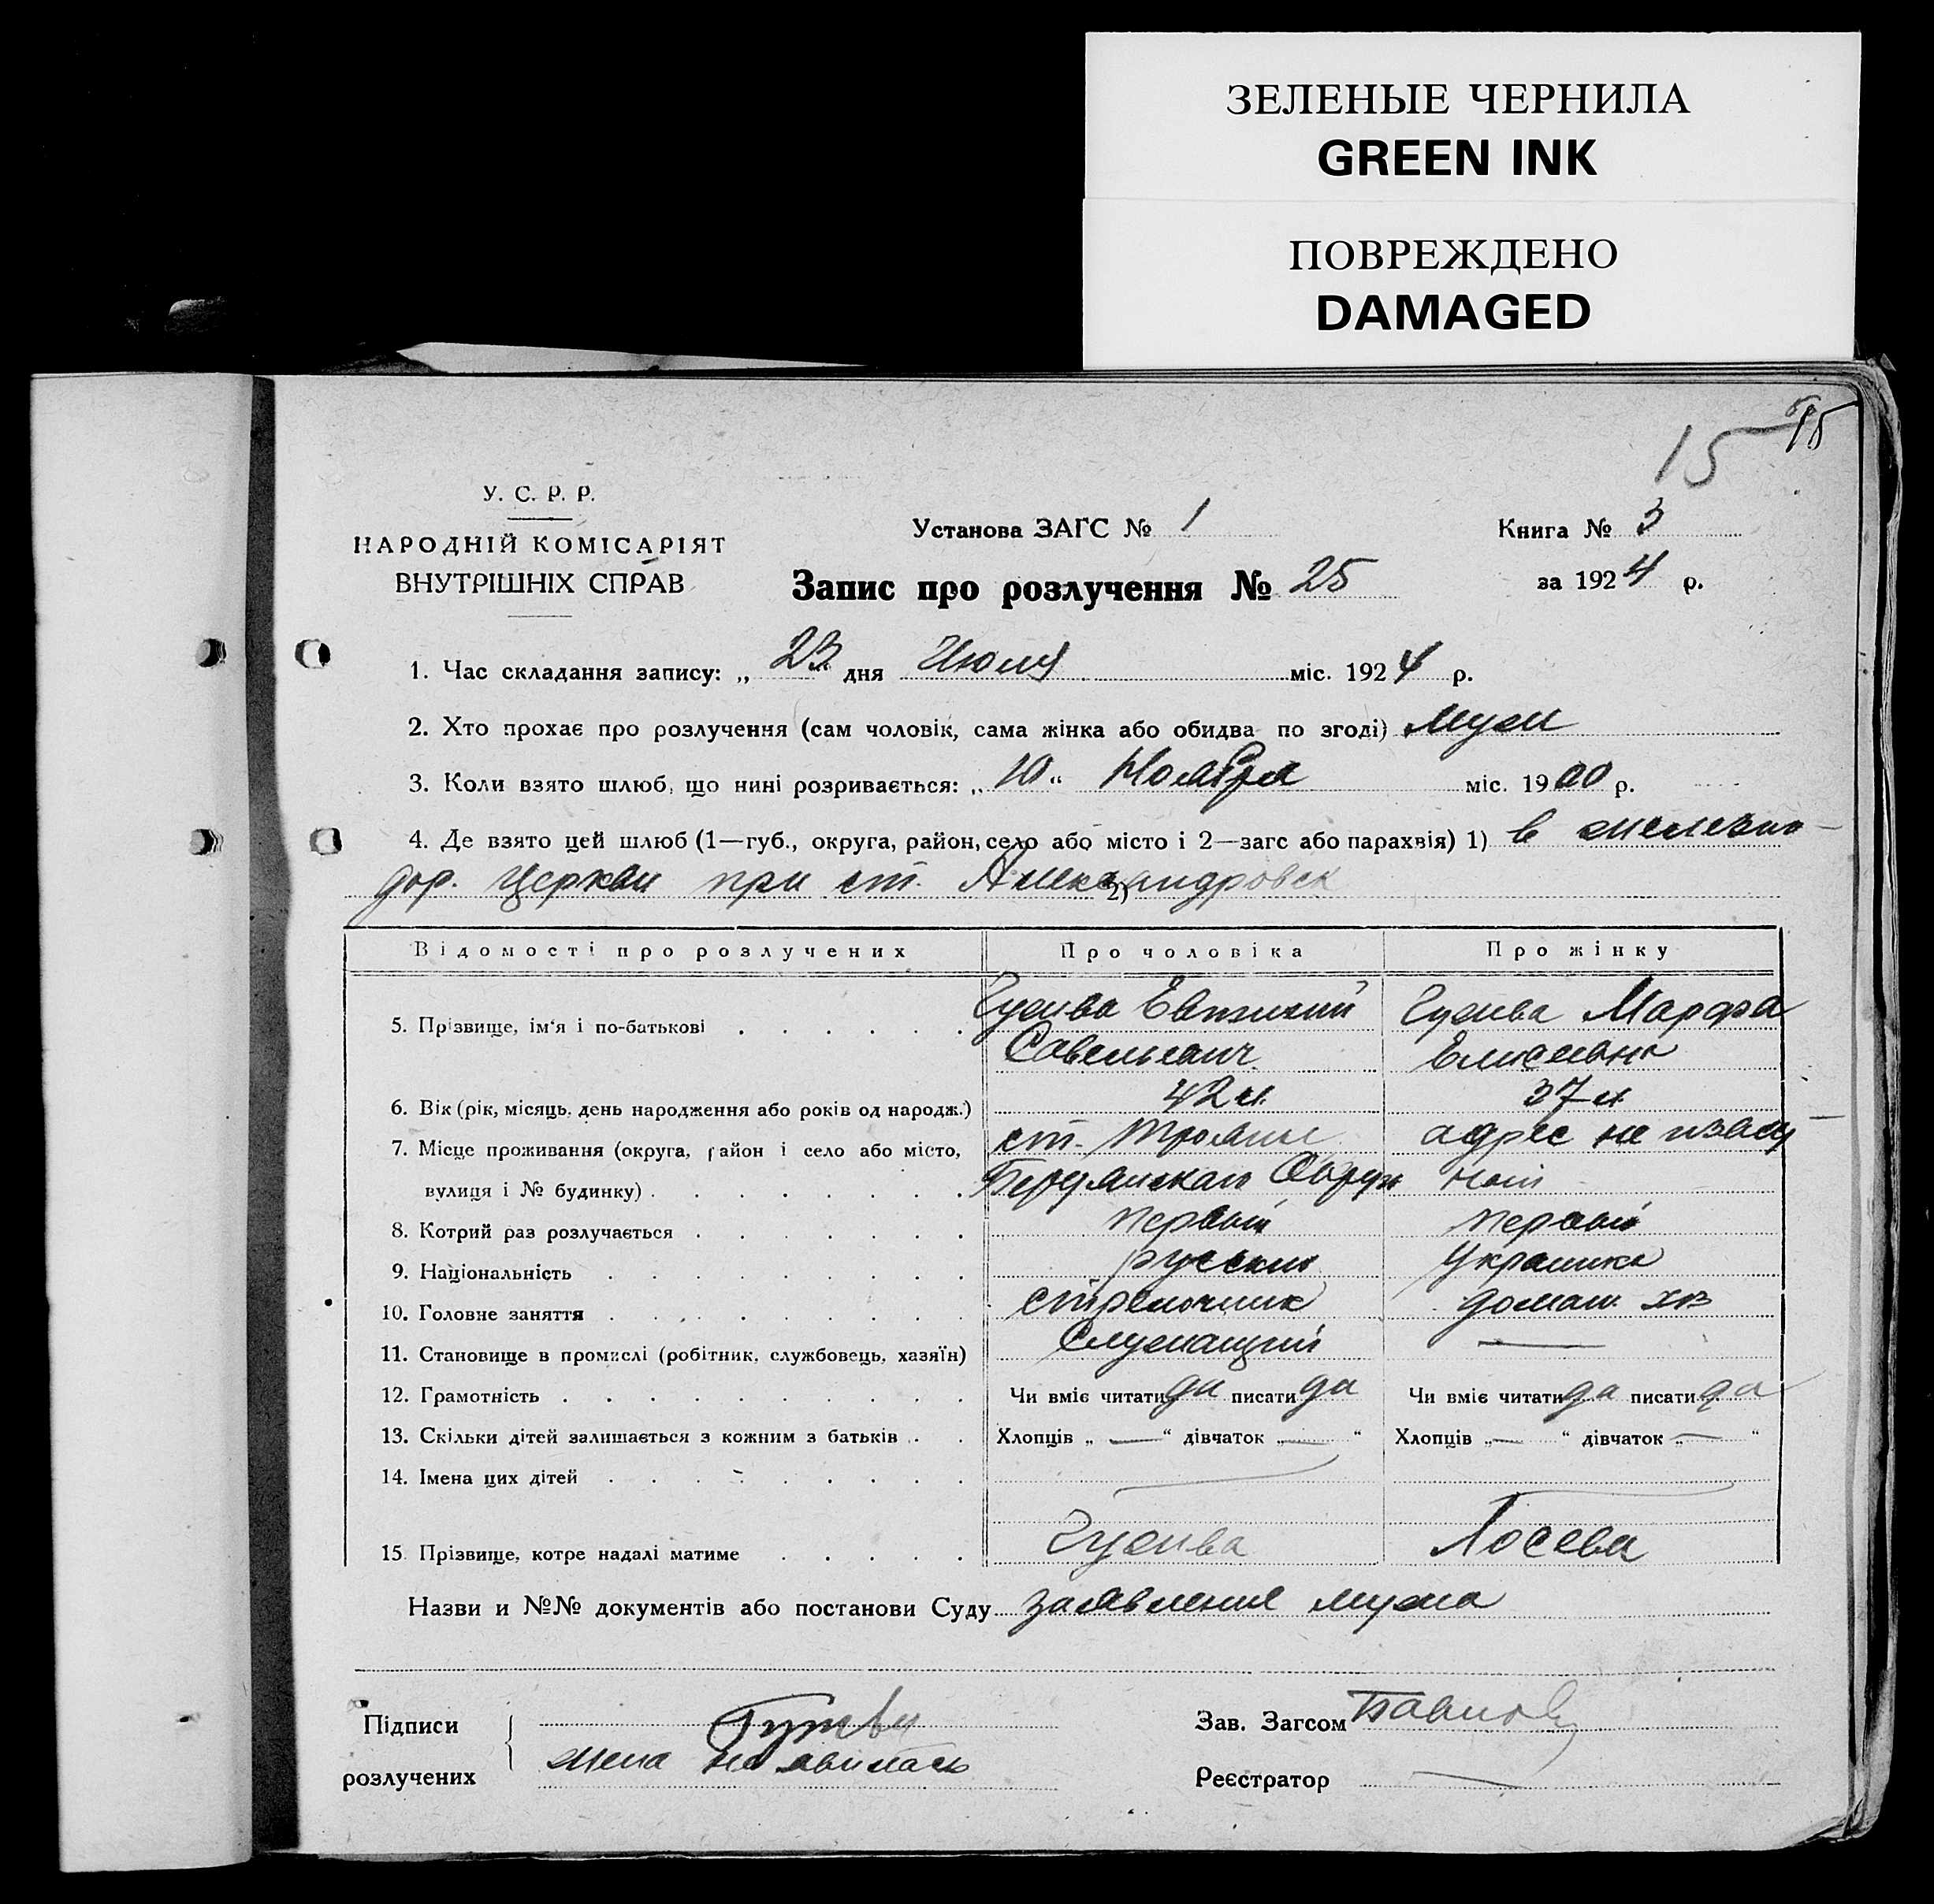 ЗЕЛЕНЫЕ ЧЕРНИЛА
GREEN INK
ПОВРЕЖДЕНО
DAMAGED
15
У. С. Р. Р.
НАРОДНІЙ КОМІСАРІЯТ
ВНУТРІШНІХ СПРАВ
Установа ЗАГС № 1
Книга № 3
Запис про розлучення № 25
за 1924 р.
1. Час складання запису: „ 23 " дня Июля міс. 1924 р.
2. Хто прохає про розлучення (сам чоловік, сама жінка або обидва по згоді) муж
3. Коли взято шлюб, що нині розривається: „ 10 " Ноября міс. 1900 р.
4. Де взято цей шлюб (1—губ., округа, район, село або місто і 2—загс або парахвія) 1) в железно-
дор. Церкви при ст. Александровск 2)
Відомості про розлучених Про чоловіка Про жінку
5. Прізвище, ім'я і по-батькові . . . . . . Савельевич Марфа
6. Вік (рік, місяць, день народження або років од народж.) 42 л. 37 л.
7. Місце проживання (округа, район і село або місто, ст. адрес не извест
вулиця і № будинку) . . . . . . . Бердянского Округа ной
8. Котрий раз розлучається . . . . . . первый первый
9. Національність . . . . . . . . русский Украинка
10. Головне заняття . . . . . . . стрелочник домаш. хоз
11. Становище в промислі (робітник, службовець, хазяїн) Служащий —
12. Грамотність . . . . . . . . . Чи вміє читати да писати да Чи вміє читати да писати да
13. Скільки дітей залишається з кожним з батьків . . Хлопців „ — " дівчаток „ — " Хлопців „ — " дівчаток „ — "
14. Імена цих дітей . . . . . . . .
15. Прізвище, котре надалі матиме . . . . . Лосева
Назви и №№ документів або постанови Суду заявления мужа
Підписи
розлучених
жена не явилась
Зав. Загсом
Реєстратор —